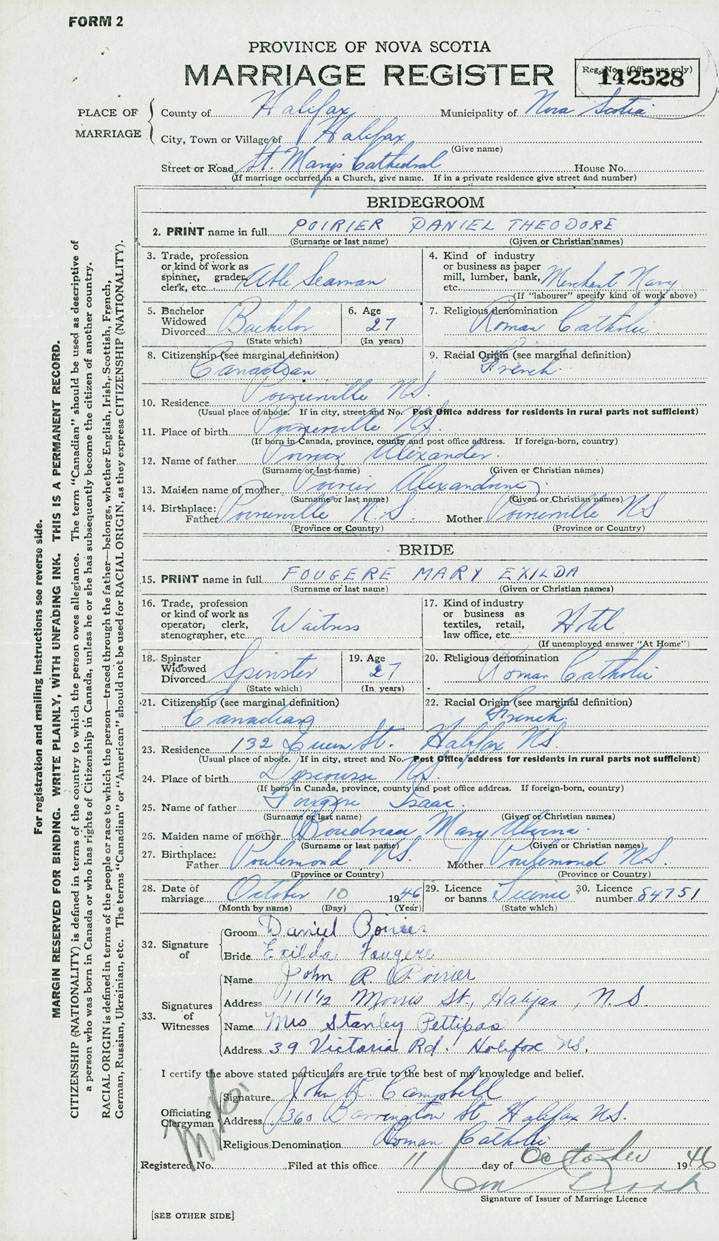 FORM 2
PROVINCE OF NOVA SCOTIA
MARRIAGE REGISTER
Reg. No. (Office use only)
142528
PLACE OF MARRIAGE
County of Halifax Municipality of Nova Scotia
City, Town or Village of Halifax
(Give name)
Street or Road St. Mary's Cathedral House No.
(If marriage occurred in a Church, give name. If in a private residence give street and number)
BRIDEGROOM
2. PRINT name in full POIRIER DANIEL THEODORE
(Surname or last name) (Given or Christian names)
3. Trade, profession or kind of work as spinner, grader, clerk, etc. Able Seaman
4. Kind of industry or business as paper mill, lumber, bank, etc. Merchant Navy
(If "labourer" specify kind of work above)
5. Bachelor Widowed Divorced Bachelor
(State which)
6. Age 27
(In years)
7. Religious denomination
Roman Catholic
8. Citizenship (see marginal definition)
Canadian
9. Racial Origin (see marginal definition)
French
10. Residence Poirierville N.S.
(Usual place of abode. If in city, street and No. Post Office address for residents in rural parts not sufficient)
11. Place of birth Poirierville N.S.
(If born in Canada, province, county and post office address. If foreign-born, country)
12. Name of father Poirier Alexander
(Surname or last name) (Given or Christian names)
13. Maiden name of mother Poirier Alexandrine
(Surname or last name) (Given or Christian names)
14. Birthplace: Father Poirierville N.S. Mother Poirierville N.S.
(Province or Country) (Province or Country)
BRIDE
15. PRINT name in full FOUGERE MARY EXILDA
(Surname or last name) (Given or Christian names)
16. Trade, profession or kind of work as operator, clerk, stenographer, etc. Waitress
17. Kind of industry or business as textiles, retail, law office, etc. Hotel
(If unemployed answer "At Home")
18. Spinster Widowed Divorced Spinster
(State which)
19. Age 27
(In years)
20. Religious denomination
Roman Catholic
21. Citizenship (see marginal definition)
Canadian
22. Racial Origin (see marginal definition)
French
23. Residence 132 Queen St. Halifax N.S.
(Usual place of abode. If in city, street and No. Post Office address for residents in rural parts not sufficient)
24. Place of birth N.S.
(If born in Canada, province, county and post office address. If foreign-born, country)
25. Name of father Fougere Isaac
(Surname or last name) (Given or Christian names)
26. Maiden name of mother Boudreau Mary
(Surname or last name) (Given or Christian names)
27. Birthplace: Father Poulemond N.S. Mother Poulemond N.S.
(Province or Country) (Province or Country)
28. Date of marriage October 10 1946
(Month by name) (Day) (Year)
29. Licence or banns Licence
(State which)
30. Licence number 84751
32. Signature of
Groom Daniel Poirier
Bride Exilda Fougere
33. Signatures of Witnesses
Name John R. Poirier
Address 111½ Morris St., Halifax, N.S.
Name Mrs Stanley Pettipas
Address 39 Victoria Rd. Halifax N.S.
I certify the above stated particulars are true to the best of my knowledge and belief.
Officiating Clergyman
Signature John Campbell
Address 360 Barrington St Halifax N.S.
Religious Denomination Roman Catholic
Registered No. Filed at this office 11 day of October 1946
Signature of Issuer of Marriage Licence
[SEE OTHER SIDE]
For registration and mailing instructions see reverse side.
MARGIN RESERVED FOR BINDING. WRITE PLAINLY, WITH UNFADING INK. THIS IS A PERMANENT RECORD.
CITIZENSHIP (NATIONALITY) is defined in terms of the country to which the person owes allegiance. The term "Canadian" should be used as descriptive of
a person who was born in Canada or who has rights of Citizenship in Canada, unless he or she has subsequently become the citizen of another country.
RACIAL ORIGIN is defined in terms of the people or race to which the person—traced through the father—belongs, whether English, Irish, Scottish, French,
German, Russian, Ukrainian, etc. The terms "Canadian" or "American" should not be used for RACIAL ORIGIN, as they express CITIZENSHIP (NATIONALITY).